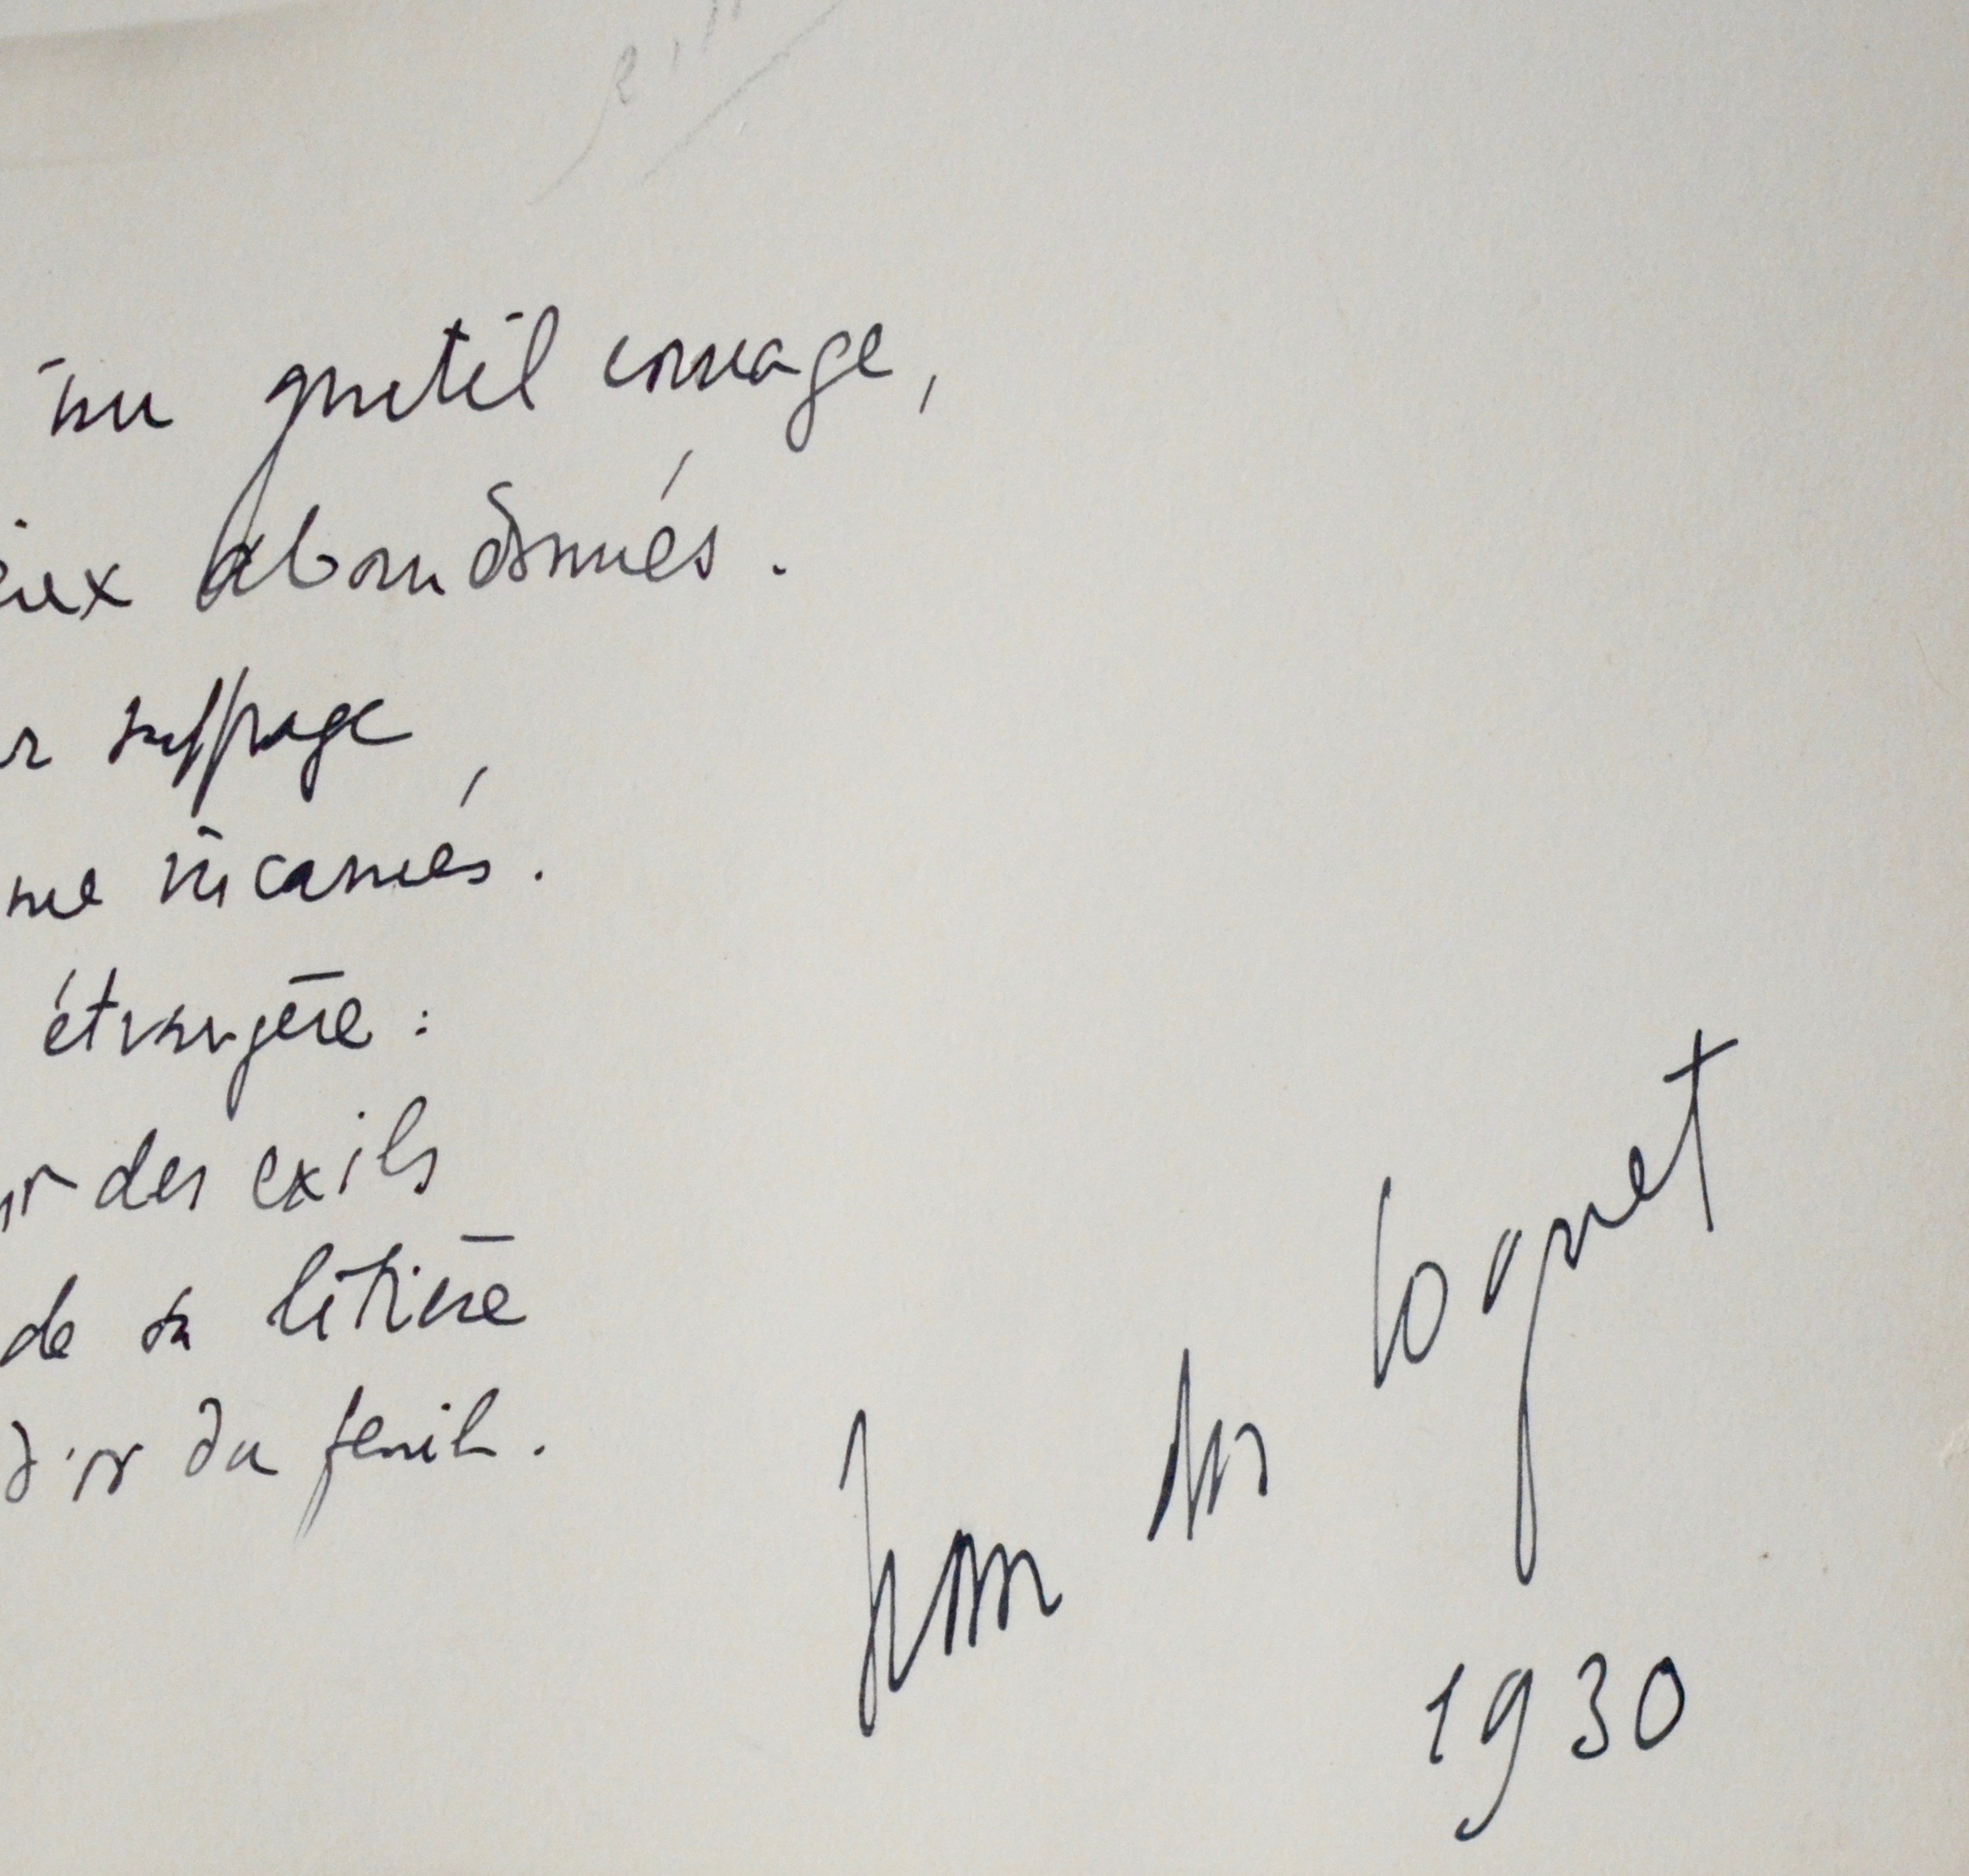 un gentil corsage,
abandonnés.
suffrage
me incarnés.
étrangère :
des exils
de sa litière
d'or du fenil.
Jean Loquet
1930